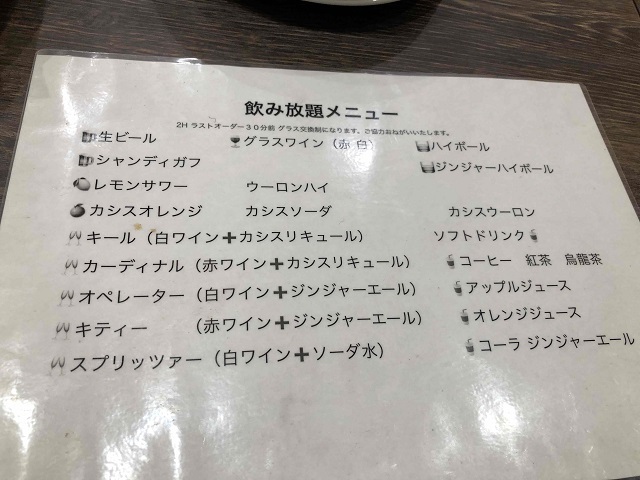 飲み放題メニュー
2H ラストオーダー30分前 グラス交換制になります。ご協力おねがいいたします。
生ビール グラスワイン（赤 白） ハイボール
シャンディガフ ジンジャーハイボール
レモンサワー ウーロンハイ
カシスオレンジ カシスソーダ カシスウーロン
キール（白ワイン➕カシスリキュール） ソフトドリンク
カーディナル（赤ワイン➕カシスリキュール） コーヒー 紅茶 烏龍茶
オペレーター（白ワイン➕ジンジャーエール） アップルジュース
キティー （赤ワイン➕ジンジャーエール） オレンジジュース
スプリッツァー（白ワイン➕ソーダ水） コーラ ジンジャーエール